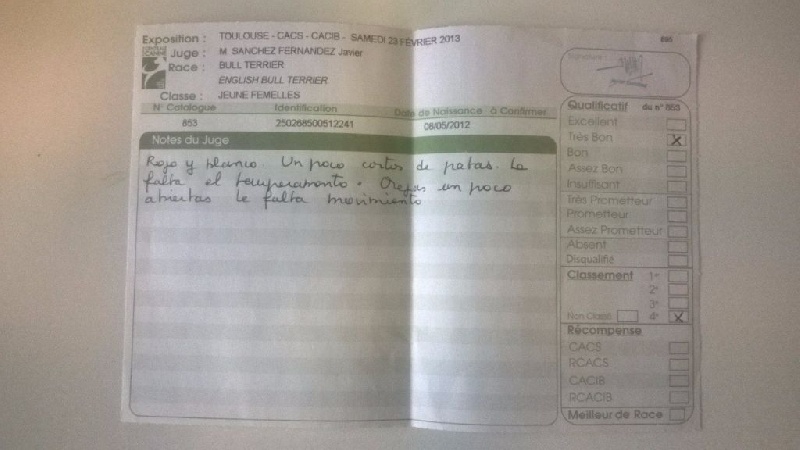 Exposition : TOULOUSE - CACS - CACIB - SAMEDI 23 FÉVRIER 2013
Juge : M. SANCHEZ FERNANDEZ Javier
Race : BULL TERRIER
ENGLISH BULL TERRIER
Classe : JEUNE FEMELLES
N° Catalogue Identification Date de Naissance à Confirmer
853 250268500512241 06/05/2012
Notes du Juge
Rojo y blanco. Un poco cortos de patas. Le
falta el temperamento. Orejas un poco
abiertas Le falta movimiento
Signature :
Qualificatif du n° 853
Excellent
Très Bon X
Bon
Assez Bon
Insuffisant
Très Prometteur
Prometteur
Assez Prometteur
Absent
Disqualifié
Classement 1er
2e
3e
Non Classé 4e X
Récompense
CACS
RCACS
CACIB
RCACIB
Meilleur de Race